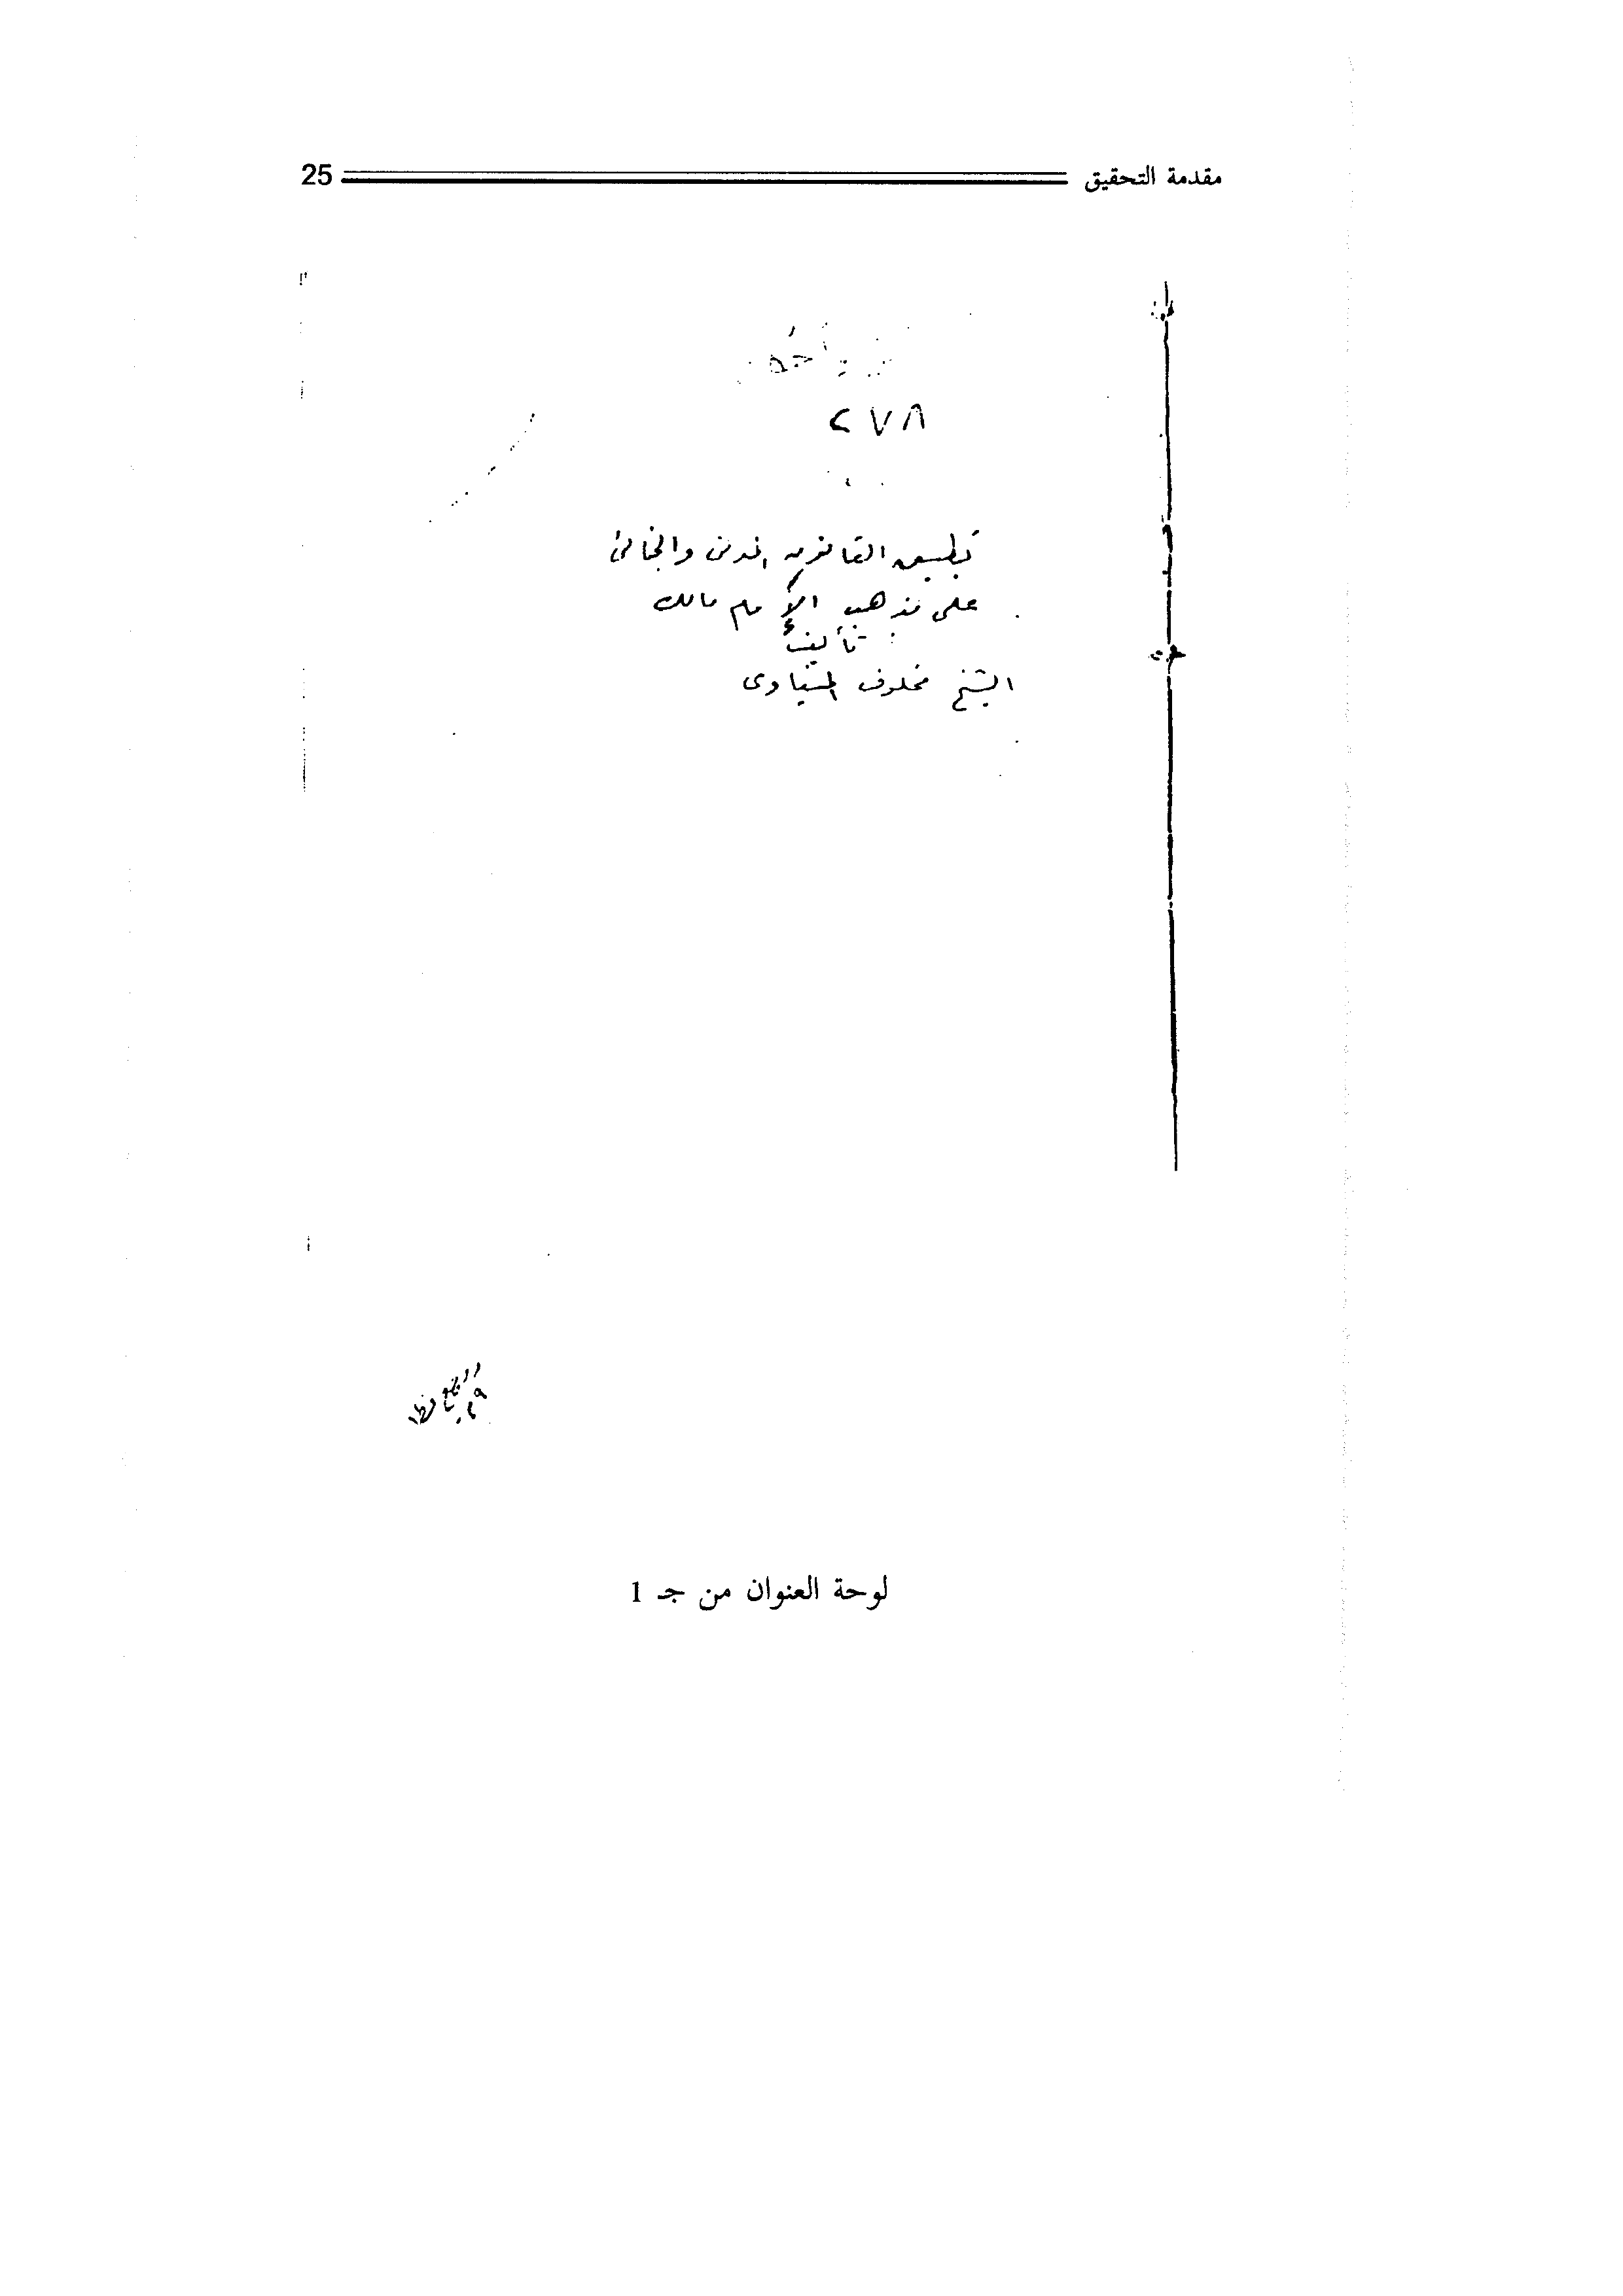 مقدمة التحقيق 25
٢٧٨
تطبيق القانون المدنى والجنائى
على مذهب الإمام مالك
تأليف
الشيخ مخلوف المنياوى
لوحة العنوان من جـ 1